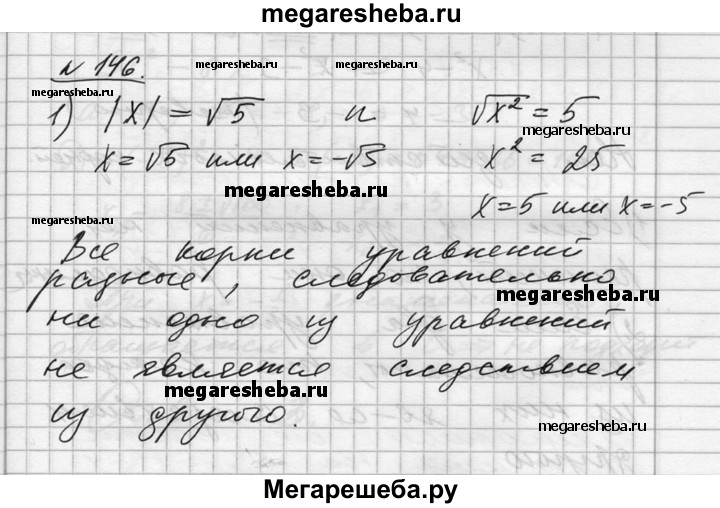 megaresheba.ru
№ 146.
megaresheba.ru megaresheba.ru
megaresheba.ru
1) |x| = √5 и √x² = 5
megaresheba.ru
x = √5 или x = -√5 x² = 25
megaresheba.ru
x = 5 или x = -5
megaresheba.ru
Все корни уравнений
разные, следовательно
megaresheba.ru
ни одно из уравнений
не является следствием
megaresheba.ru
из другого.
megaresheba.ru
Мегарешеба.ру